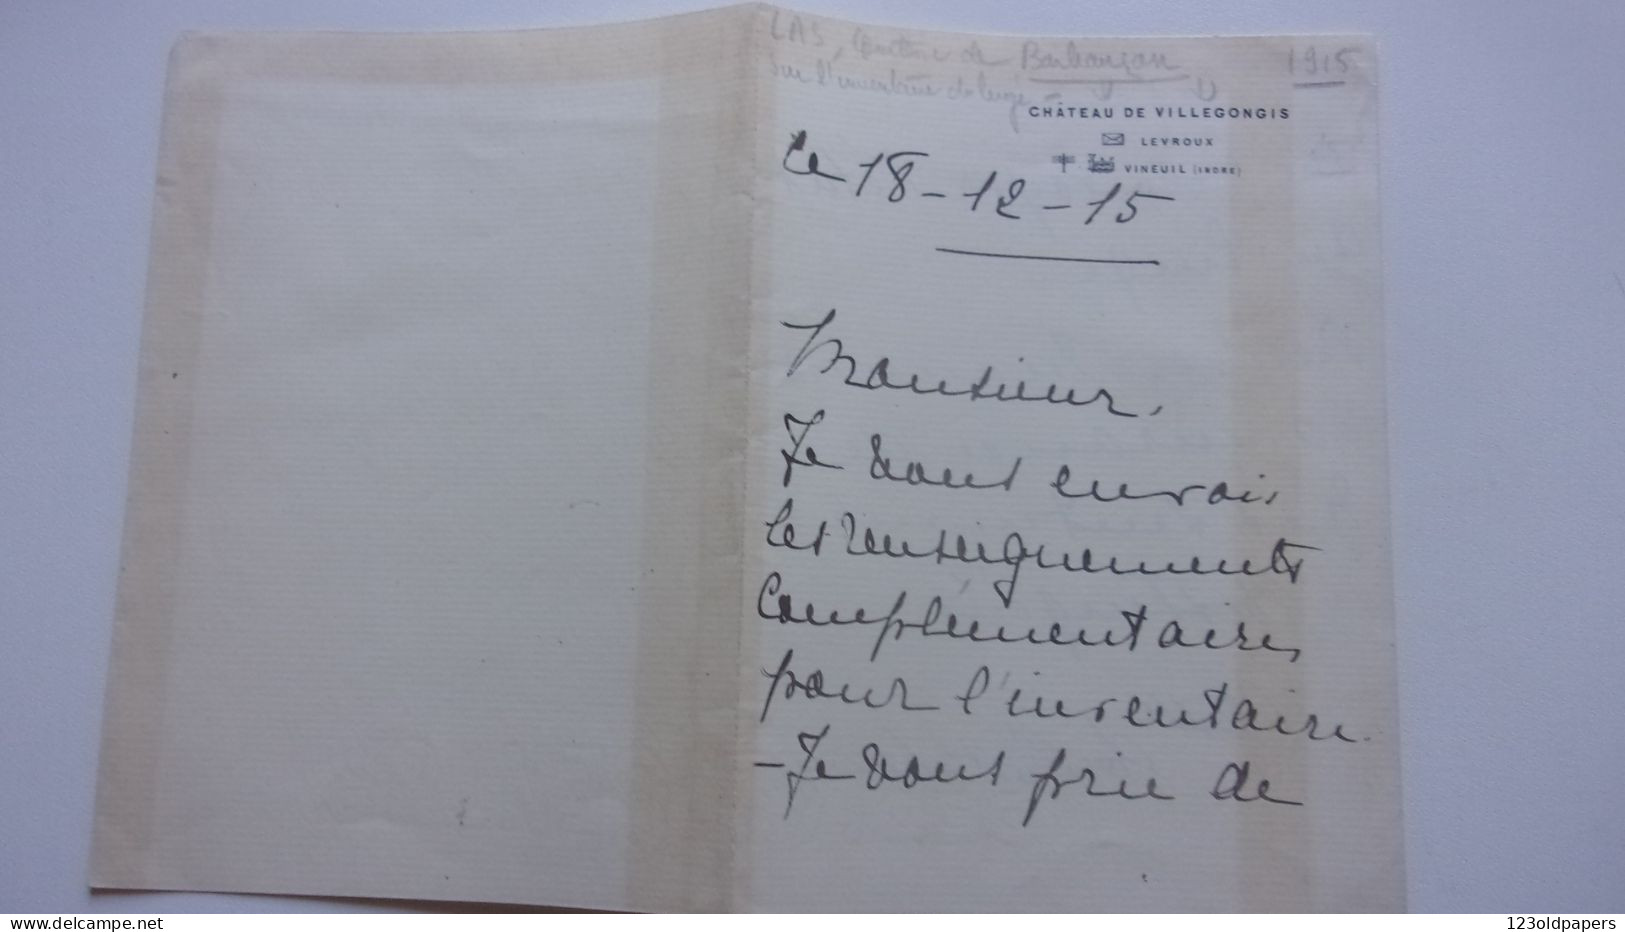 LAS, Comtesse de Barbançon 1915
sur l'inventaire
CHÂTEAU DE VILLEGONGIS
LEVROUX
VINEUIL (INDRE)
Le 18-12-15
Monsieur,
Je vous envois
les renseignements
complémentaires
pour l'inventaire.
-Je vous prie de
123oldpapers
delcampe.net